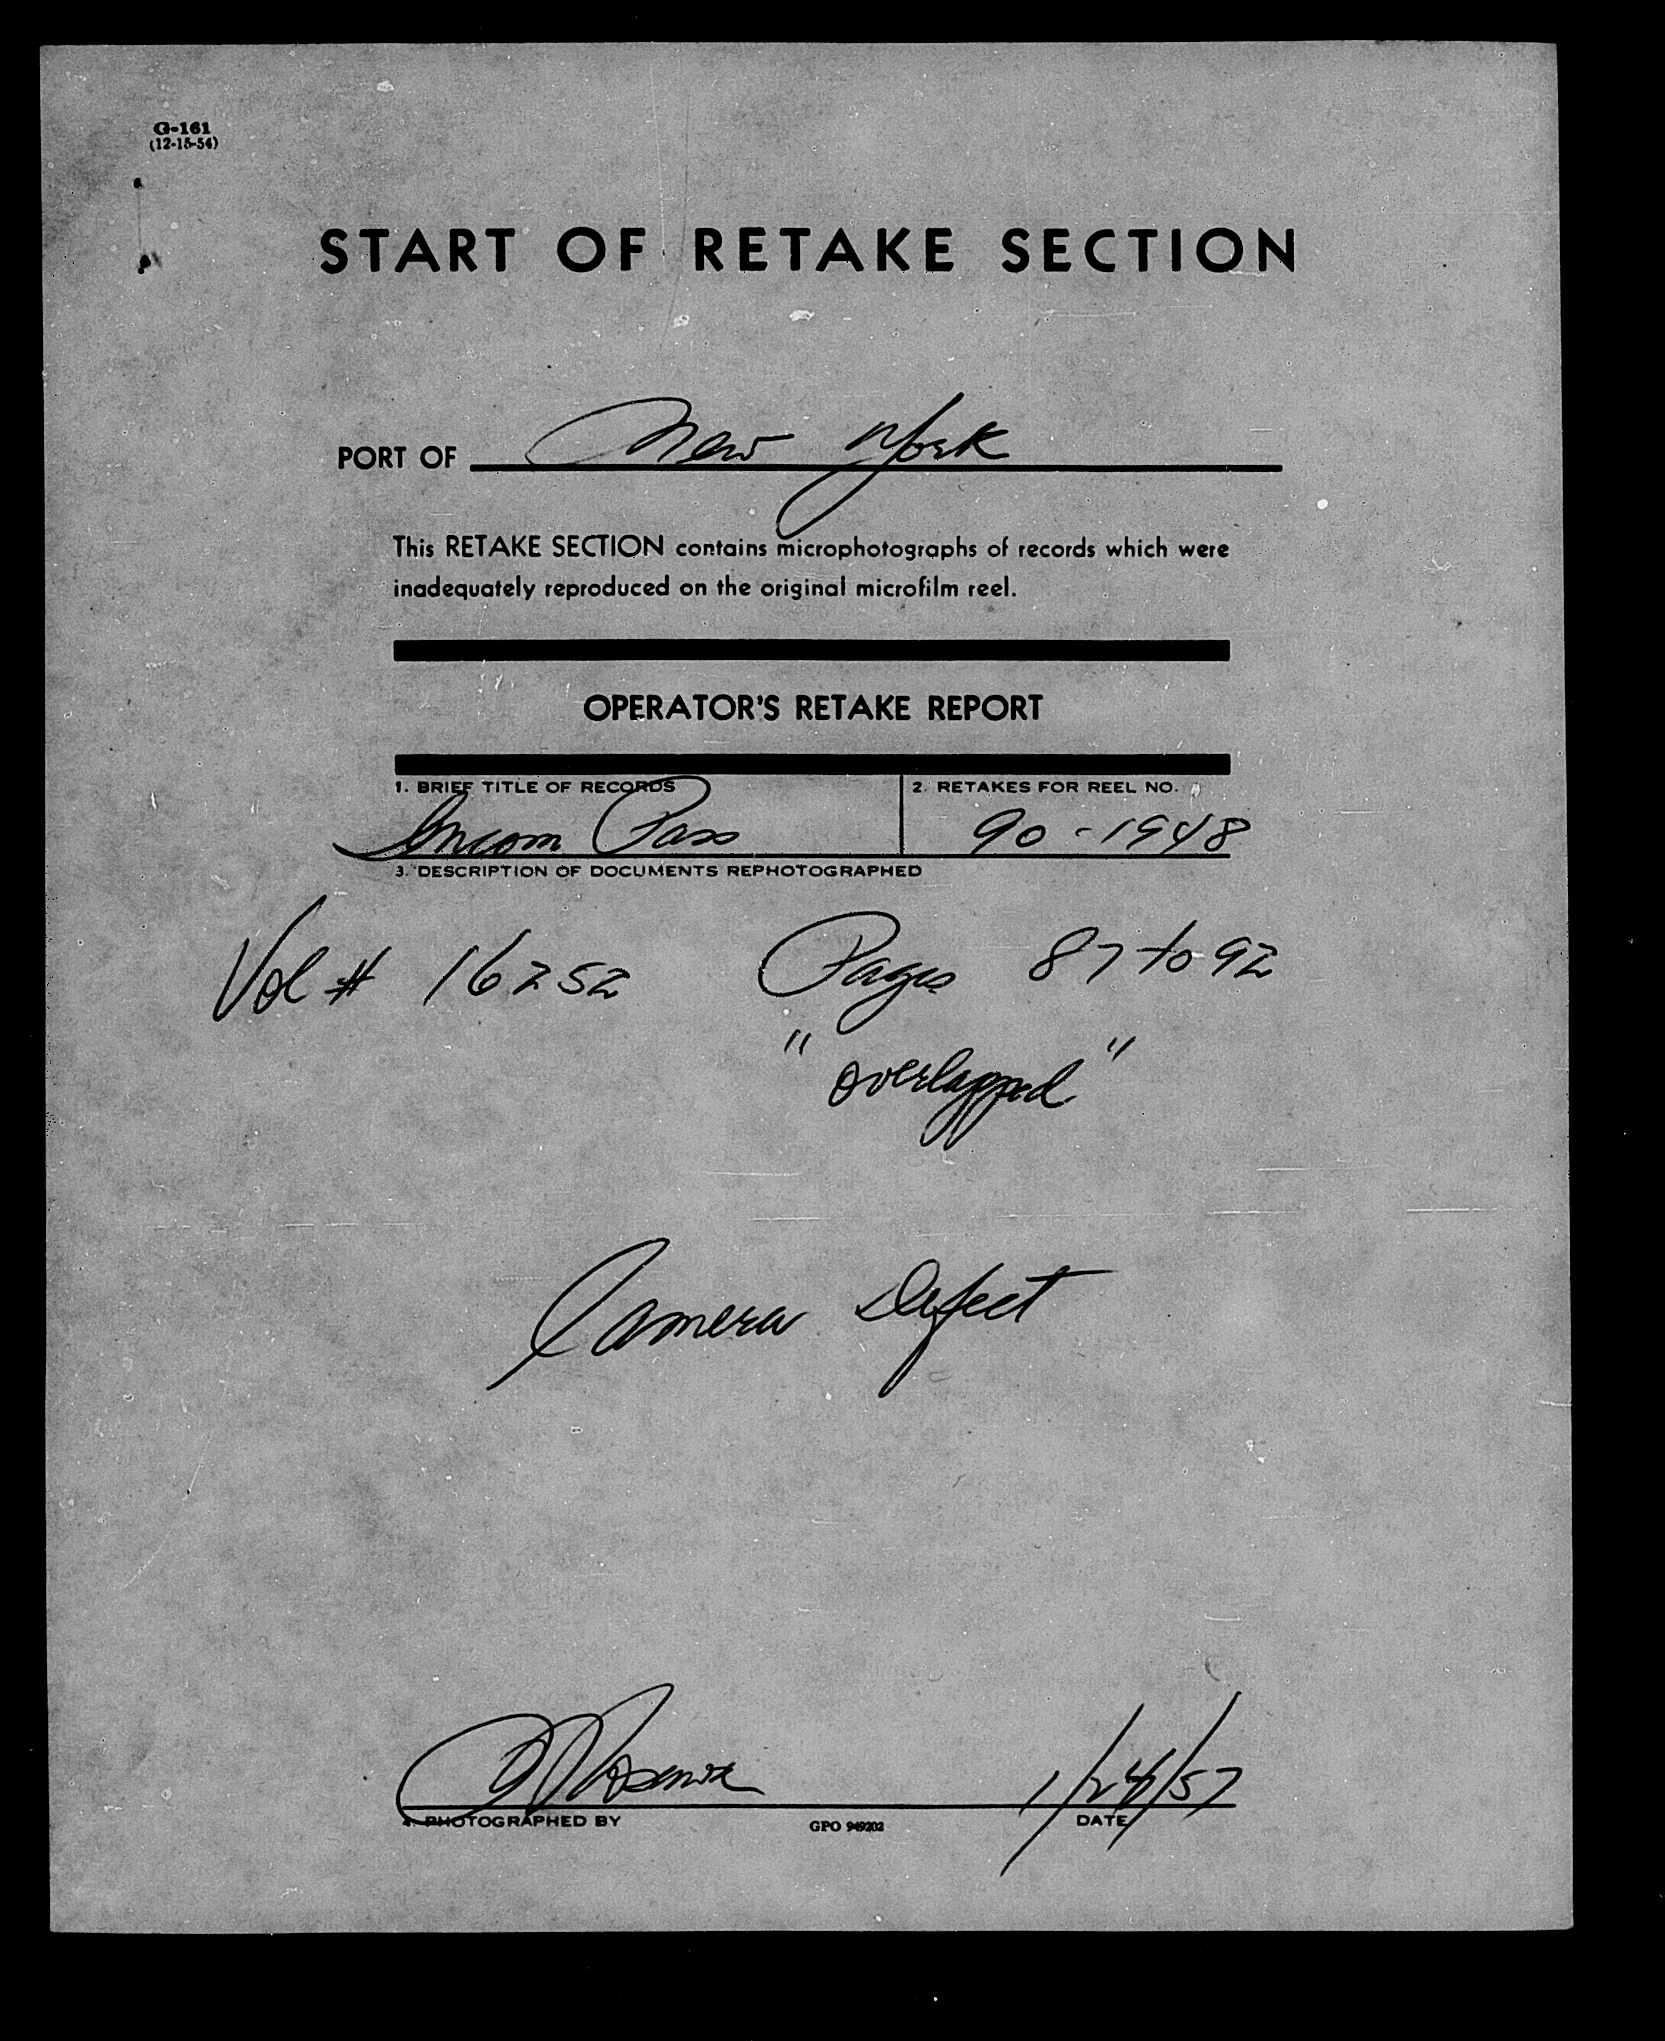 G-161
(12-15-54)
START OF RETAKE SECTION
PORT OF New York
This RETAKE SECTION contains microphotographs of records which were
inadequately reproduced on the original microfilm reel.
OPERATOR'S RETAKE REPORT
1. BRIEF TITLE OF RECORDS 2. RETAKES FOR REEL NO.
Incom Pass 90-1948
3. DESCRIPTION OF DOCUMENTS REPHOTOGRAPHED
Vol # 16252 Pages 87 to 92
"overlapped"
Camera Defect
1/24/57
4. PHOTOGRAPHED BY GPO 949202 DATE